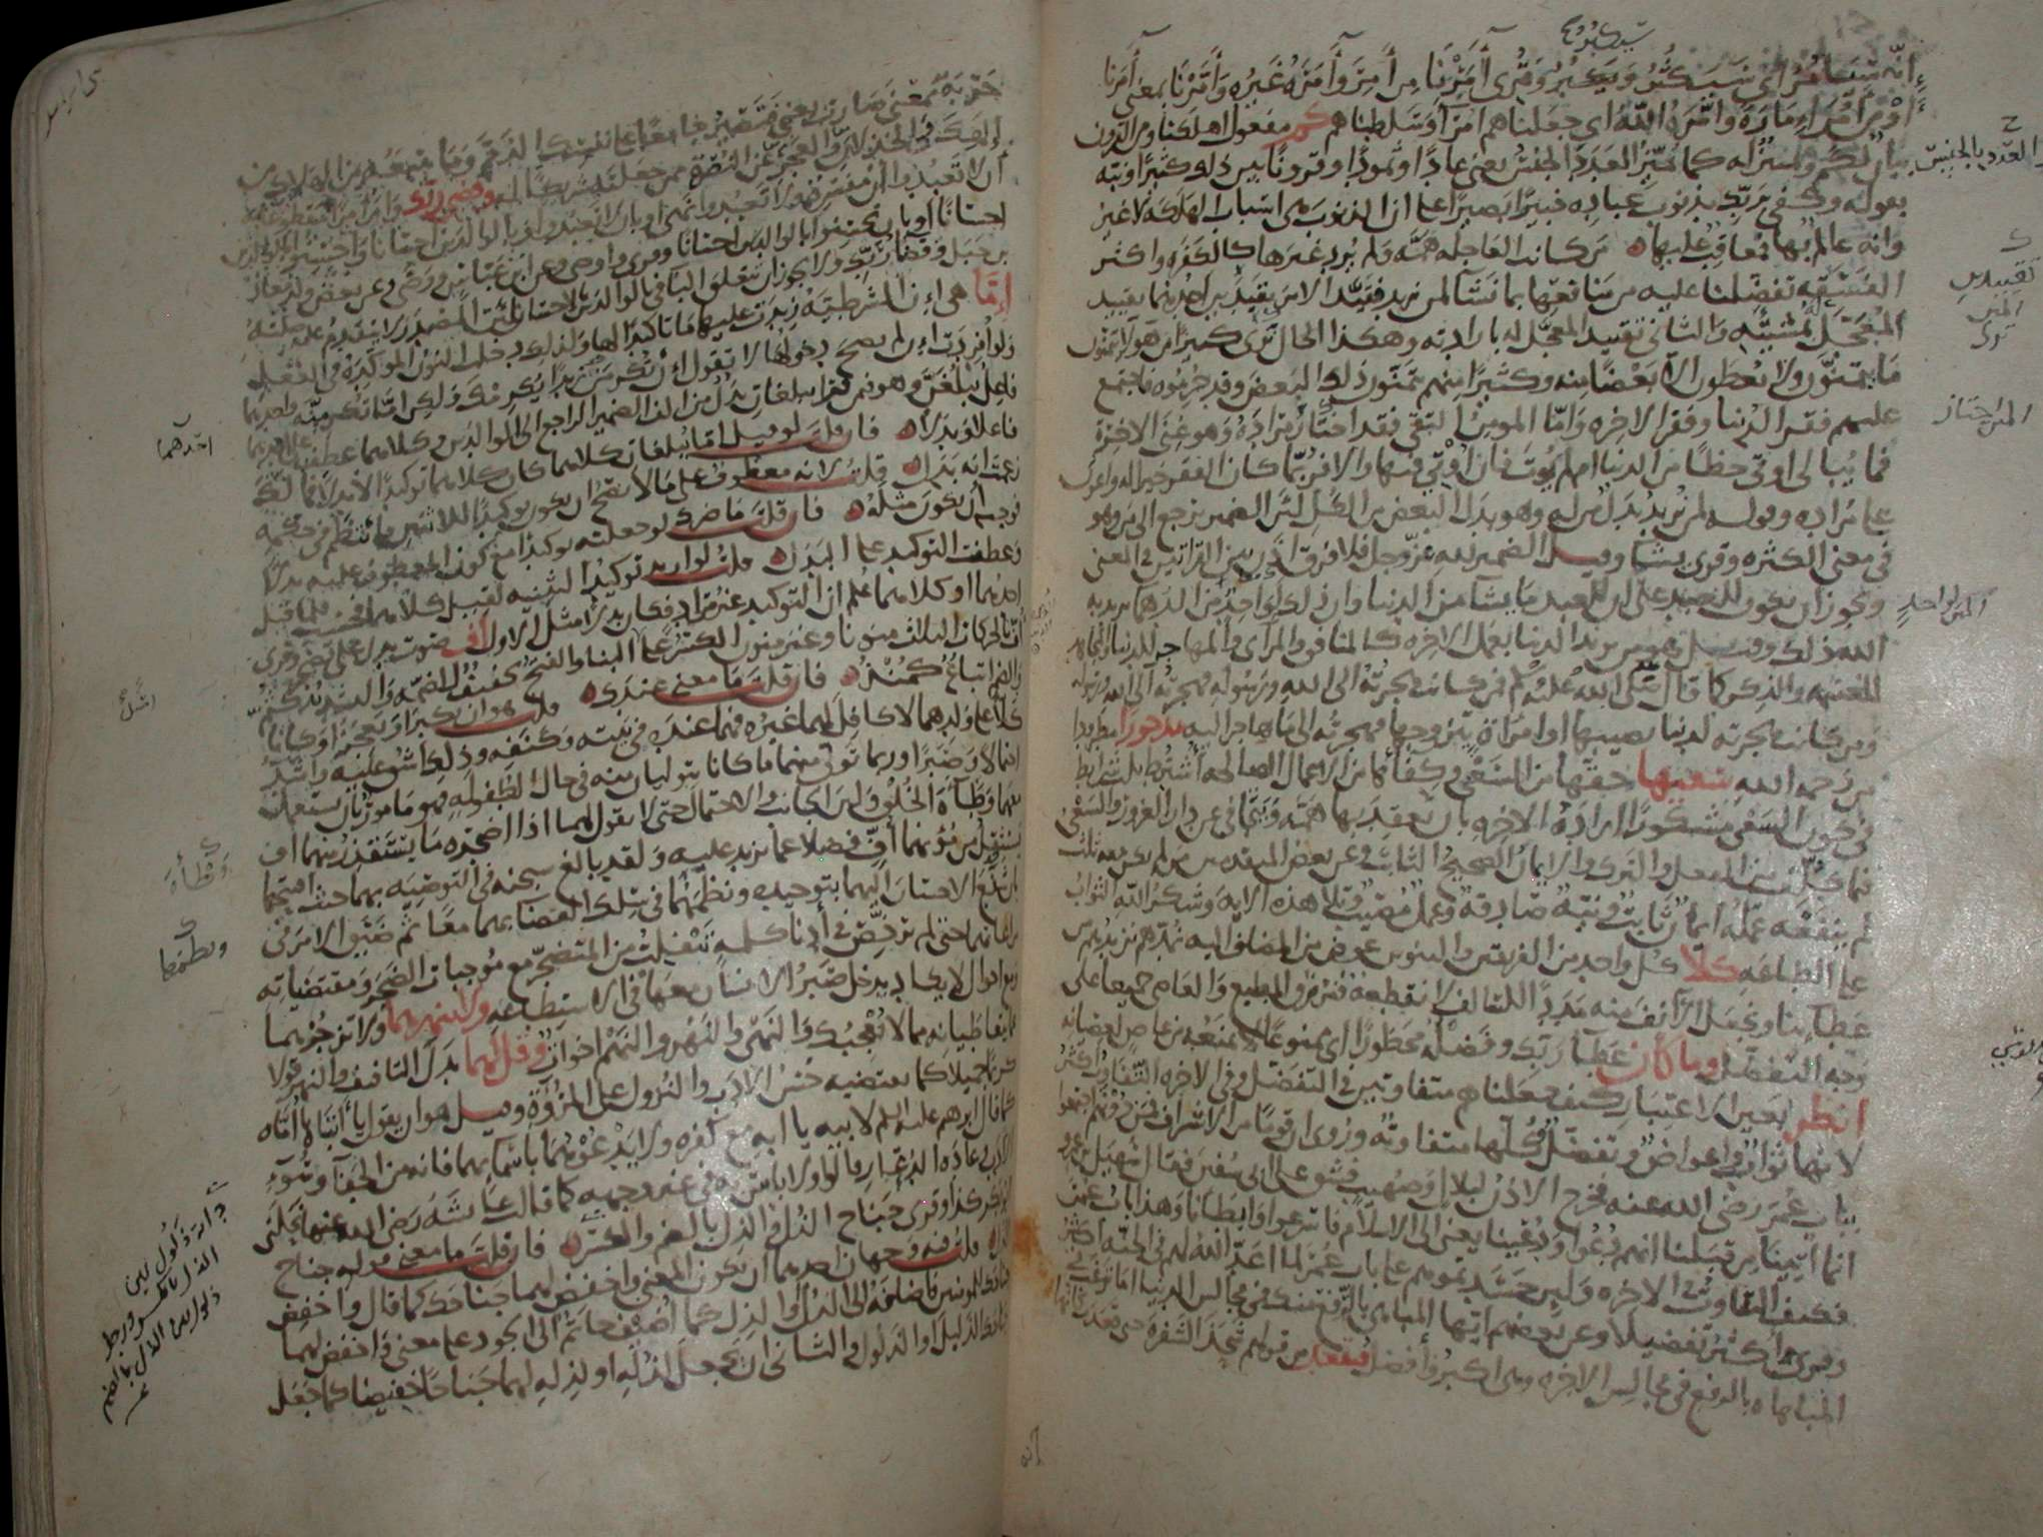 سيكبر
إنه سيأمر أي سيكثر ويكبر وقرئ آمرنا من أمر وأمره غيره وأمرنا بمعنى آمرنا
أو من أمر إمارة وأمره الله أي جعلناهم أمرا وسلطناهم كم مفعول أهلكنا ومن القرون
بيان لكم وتمييز له كما يميز العدد بالجنس يعني عادا وثمودا وقرونا بين ذلك كثيرا ونبه
العدد بالجنس
بقوله وكفى بربك بذنوب عباده خبيرا بصيرا على أن الذنوب هي أسباب الهلكة لا غير
وأنه عالم بها ومعاقب عليها من كانت العاجلة همه ولم يرد غيرها كالكفرة وأكثر
الفسقة تفضلنا عليه من منافعها بما نشا لمن نريد فقيد الأمر تقييدين أحدهما تقييد
تقييدين
المعجل بمشيته والثاني تقييد المعجل له بإرادته وهكذا الحال ترى كثيرا من هؤلا يتمنون
ما يتمنون ولا يعطون إلا بعضا منه وكثيرا منهم يتمنون ذلك البعض وقد حرموه فاجتمع
عليهم فقر الدنيا وفقر الآخرة وأما المومن التقي فقد اختار مراده وهو غنى الآخرة
فما يبالي أوتي حظا من الدنيا أم لم يوت فإن أوتي فيها وإلا فربما كان الفقر خيرا له وأعون
على مراده وقوله لمن نريد بدل من له وهو بدل البعض من الكل لأن الضمير يرجع إلى من وهو
في معنى الكثرة وقرئ يشا وقيل الضمير لله عز وجل فلا فرق إذن بين القراتين في المعنى
ويجوز أن يكون للعبد على أن للعبد ما يشا من الدنيا وأن ذلك لواحد من الدهما يريد به
الله ذلك وقيل هو من يريد الدنيا بعمل الآخرة كالمنافق والمرائي والمهاجر للدنيا والمجاهد
للغنيمة والذكر كما قال صلى الله عليه وسلم فمن كانت هجرته إلى الله ورسوله فهجرته إلى الله ورسوله
ومن كانت هجرته لدنيا يصيبها أو امرأة يتزوجها فهجرته إلى ما هاجر إليه مدحورا مطرودا
من رحمة الله سعيها حقها من السعي وكفاها من الأعمال الصالحة اشترط ثلث شرايط
في كون السعي مشكورا إرادة الآخرة بأن يعقد بها همه ويتجافى عن دار الغرور والسعي
فيما كلف من الفعل والترك والإيمان الصحيح الثابت وعن بعض المتقدمين من لم يكن معه ثلث
لم ينفعه عمله إيمان ثابت ونية صادقة وعمل مصيب وتلا هذه الآية وشكر الله الثواب
على الطاعة كلا كل واحد من الفريقين والتنوين عوض من المضاف إليه نمد هم نزيدهم من
عطائنا ونجعل الآنف منه مددا للسالف لا نقطعه فنرزق المطيع والعاصي جميعا على
وجه التفضل وما كان عطا ربك وفضله محظورا أي ممنوعا لا يمنعه من عاص لعصيانه
انظر بعين الاعتبار كيف جعلناهم متفاوتين في التفضل وفي الآخرة التفاوت أكثر
لأنها ثواب وأعواض وتفضل وكلها متفاوتة وروي أن قوما من الأشراف فمن دونهم اجتمعوا
بباب عمر رضي الله عنه فخرج الإذن لبلال وصهيب فشق على أبي سفين فقال سهيل بن عمرو
إنما أتينا من قبلنا إنهم دعوا ودعينا يعني إلى الإسلام فأسرعوا وأبطأنا وهذا باب عمر
فكيف التفاوت في الآخرة ولين حسدتموهم على باب عمر لما أعد الله لهم في الجنة أكثر
وقرئ أكثر تفضيلا وعن بعضهم أيها المباهي بالرفع منك في مجالس الدنيا أما ترغب في
المباهاة بالرفع في مجالس الآخرة وهي أكبر وأفضل فتقعد من قولهم شحذ الشفرة حتى قعدت
حربة بمعنى صارت يعني فتصير جامعا على نفسك الذم وما يتبعه من الهلاك من
إلهك والخذلان والعجز عن النصرة ممن جعلته شريكا له وقضى ربك وأمر أمرا مقطوعا به
أن لا تعبدوا أن مفسرة ولا تعبدوا نهي أو بأن لا تعبدوا وبالوالدين إحسانا وأحسنوا بالوالدين
إحسانا أو بأن تحسنوا بالوالدين إحسانا وقرئ وأوصى وعن ابن عباس ووصى وعن بعض ولد معاذ
بن جبل وقضا ربك ولا يجوز أن يتعلق البا في بالوالدين بالإحسان لأن المصدر لا يتقدم عليه صلته
إما هي إن الشرطية زيدت عليها ما تاكيدا لها ولذلك دخلت النون الموكدة في الفعل
ولو أفردت إن لم يصح دخولها لا تقول إن تكرمن زيدا يكرمك ولكن إما تكرمنه وأحدهما
فاعل يبلغن وهو فيمن قرأ يبلغان بدل من ألف الضمير الراجع إلى الوالدين وكلاهما عطف على أحدهما
أحدهما
فاعلا وبدلا فإن قلت لو قيل إما يبلغان كلاهما كان كلاهما توكيدا لا بدلا فما لك
زعمت أنه بدل قلت لأنه معطوف على ما لا يصح أن يكون توكيدا للاثنين فانتظم في حكمه
فوجب أن يكون مثله فإن قلت ما ضرك لو جعلته توكيدا مع كون المعطوف عليه بدلا
وعطفت التوكيد على البدل قلت لو أريد توكيد التثنية لقيل كلاهما فحسب فلما قيل
أحدهما أو كلاهما علم أن التوكيد غير مراد فكان بدلا مثل الأول أف صوت يدل على تضجر وقرئ
أف بالحركات الثلاث منونا وغير منون الكسر على البنا والفتح تخفيف للضمة والتشديد كثم
والضم إتباع كمنذ فإن قلت ما معنى عندك قلت هو أن يكبرا ويعجزا وكانا
كلا على ولدهما لا كافل لهما غيره فهما عنده في بيته وكنفه وذلك أشق عليه وأشد
احتمالا وصبرا وربما تولى منهما ما كانا يتوليان منه في حال الطفولة فهو مأمور بأن يستعمل
معهما وطأة الخلق ولين الجانب والاحتمال حتى لا يقول لهما إذا أضجره ما يستقذر منهما أو
وطأة
يستثقل من مؤنهما أف فضلا عما يزيد عليه ولقد بالغ سبحنه في التوصية بهما حيث افتتحها
بأن شفع الإحسان إليهما بتوحيده ونظمهما في سلك القضا بهما معا ثم ضيق الأمر في
ونظمهما
مراعاتهما حتى لم يرخص في أدنى كلمة تنفلت من المتضجر مع موجبات الضجر ومقتضياته
ومع أحوال لا يكاد يدخل صبر الإنسان معها في الاستطاعة ولا تنهرهما ولا تزجرهما
عما يتعاطيانه مما لا يعجبك والنهي والنهر والنهم أخوات وقل لهما بدل التأفيف والنهر قولا
كريما جميلا كما يقتضيه حسن الأدب والنزول على المروة وقيل هو أن يقول يا أبتاه يا أماه
كما قال إبرهيم عليه السلم لأبيه يا أبه مع كفره ولا يدعوهما بأسمائهما فإنه من الجفا وسوء
الأدب وعادة الدعار قالوا ولا بأس به في غير وجهه كما قالت عائشة رضي الله عنها نحلني
أبو بكر كذا وقرئ جناح الذل والذل بالضم والكسر فإن قلت ما معنى قوله جناح
الذل قلت فيه وجهان أحدهما أن يكون المعنى واخفض لهما جناحك كما قال واخفض
جناحك للمومنين فأضافه إلى الذل أو الذل كما أضيف حاتم إلى الجود على معنى واخفض لهما
جناحك الذليل أو الذلول والثاني أن تجعل لذله أو لذله لهما جناحا خفيضا كما جعل